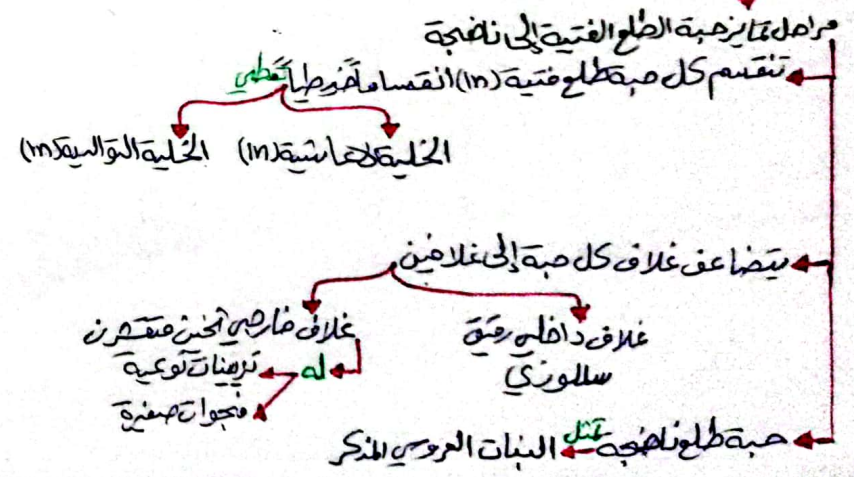 مراحل تمايز حبة الطلع الفتية إلى ناضجة
تنقسم كل حبة طلع فتية (1n) انقساماً خوطياً تعطي
الخلية الإعاشية (1n) الخلية التوالدية (1n)
يتضاعف غلاف كل حبة إلى غلافين
غلاف داخلي رقيق سللوزي
غلاف خارجي ثخين متقشرن
له تزيينات نوعية
فجوات صغيرة
حبة طلع ناضجة تمثل النبات العروسي المذكر